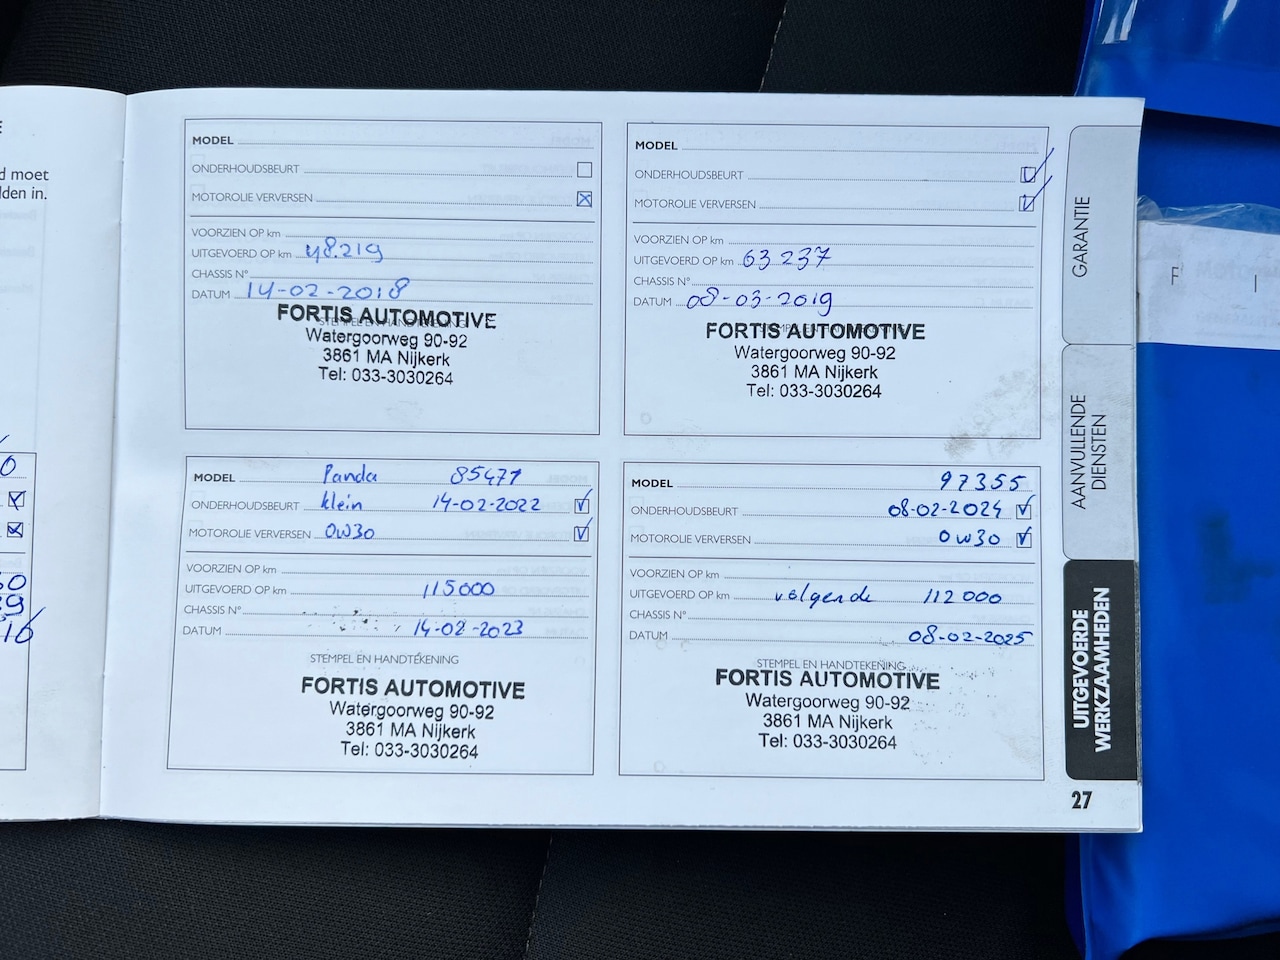 d moet
lden in.
MODEL
ONDERHOUDSBEURT
MOTOROLIE VERVERSEN
VOORZIEN OP km
UITGEVOERD OP km 48.219
CHASSIS N°
DATUM 14-02-2018
STEMPEL EN HANDTEKENING
FORTIS AUTOMOTIVE
Watergoorweg 90-92
3861 MA Nijkerk
Tel: 033-3030264
MODEL
ONDERHOUDSBEURT
MOTOROLIE VERVERSEN
VOORZIEN OP km
UITGEVOERD OP km 63237
CHASSIS N°
DATUM 08-03-2019
STEMPEL EN HANDTEKENING
FORTIS AUTOMOTIVE
Watergoorweg 90-92
3861 MA Nijkerk
Tel: 033-3030264
MODEL Panda 85471
ONDERHOUDSBEURT klein 14-02-2022
MOTOROLIE VERVERSEN 0W30
VOORZIEN OP km
UITGEVOERD OP km 115000
CHASSIS N°
DATUM 14-02-2023
STEMPEL EN HANDTEKENING
FORTIS AUTOMOTIVE
Watergoorweg 90-92
3861 MA Nijkerk
Tel: 033-3030264
MODEL 97355
ONDERHOUDSBEURT 08-02-2024
MOTOROLIE VERVERSEN 0W30
VOORZIEN OP km
UITGEVOERD OP km volgende 112000
CHASSIS N°
DATUM 08-02-2025
STEMPEL EN HANDTEKENING
FORTIS AUTOMOTIVE
Watergoorweg 90-92
3861 MA Nijkerk
Tel: 033-3030264
GARANTIE
AANVULLENDE
DIENSTEN
UITGEVOERDE
WERKZAAMHEDEN
27
F I